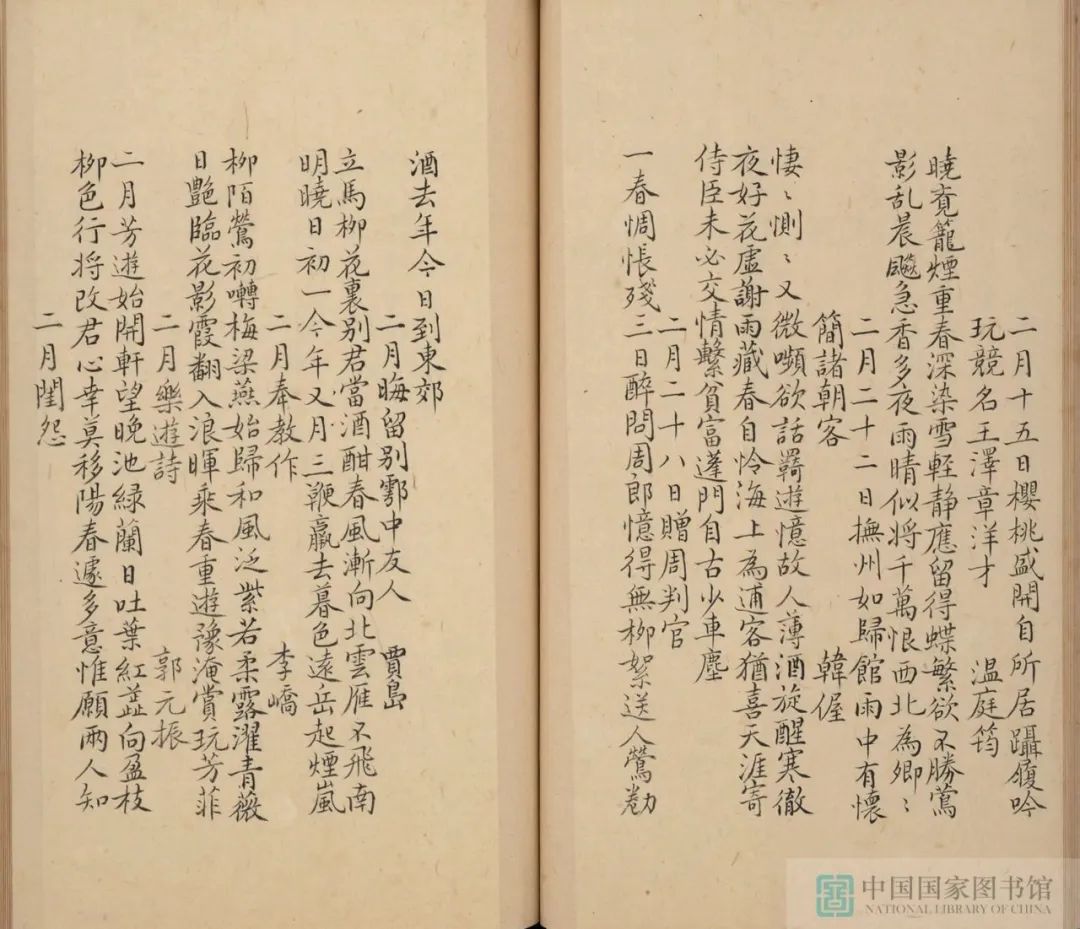 二月十五日櫻桃盛開自所居躡履吟
玩競名王澤章洋才 温庭筠
曉覔籠煙重春深染雪輕静應留得蝶繁欲不勝鶯
影乱晨飈急香多夜雨晴似将千萬恨西北為卿〻
二月二十二日撫州如歸館雨中有懷
簡諸朝客 韓偓
悽〻惻〻又微嚬欲話羇遊憶故人薄酒旋醒寒徹
夜好花虛謝雨藏春自怜海上為逋客猶喜天涯寄
侍臣未必交情繫貧富蓬門自古少車塵
二月二十八日贈周判官
一春惆悵殘三日醉問周郎憶得無柳絮送人鶯勸
酒去年今日到東郊
二月晦留别鄠中友人 賈島
立馬柳花裏别君當酒酣春風漸向北雲雁不飛南
明曉日初一今年又月三鞭羸去暮色遠岳起煙嵐
二月奉教作 李嶠
柳陌鶯初囀梅梁燕始歸和風泛紫若柔露濯青薇
日艷臨花影霞翻入浪暉乘春重遊豫淹賞玩芳菲
二月樂遊詩 郭元振
二月芳遊始開軒望晚池緑蘭日吐葉紅蕋向盈枝
柳色行将改君心幸莫移陽春遽多意惟願兩人知
二月閨怨
中国国家图书馆
NATIONAL LIBRARY OF CHINA